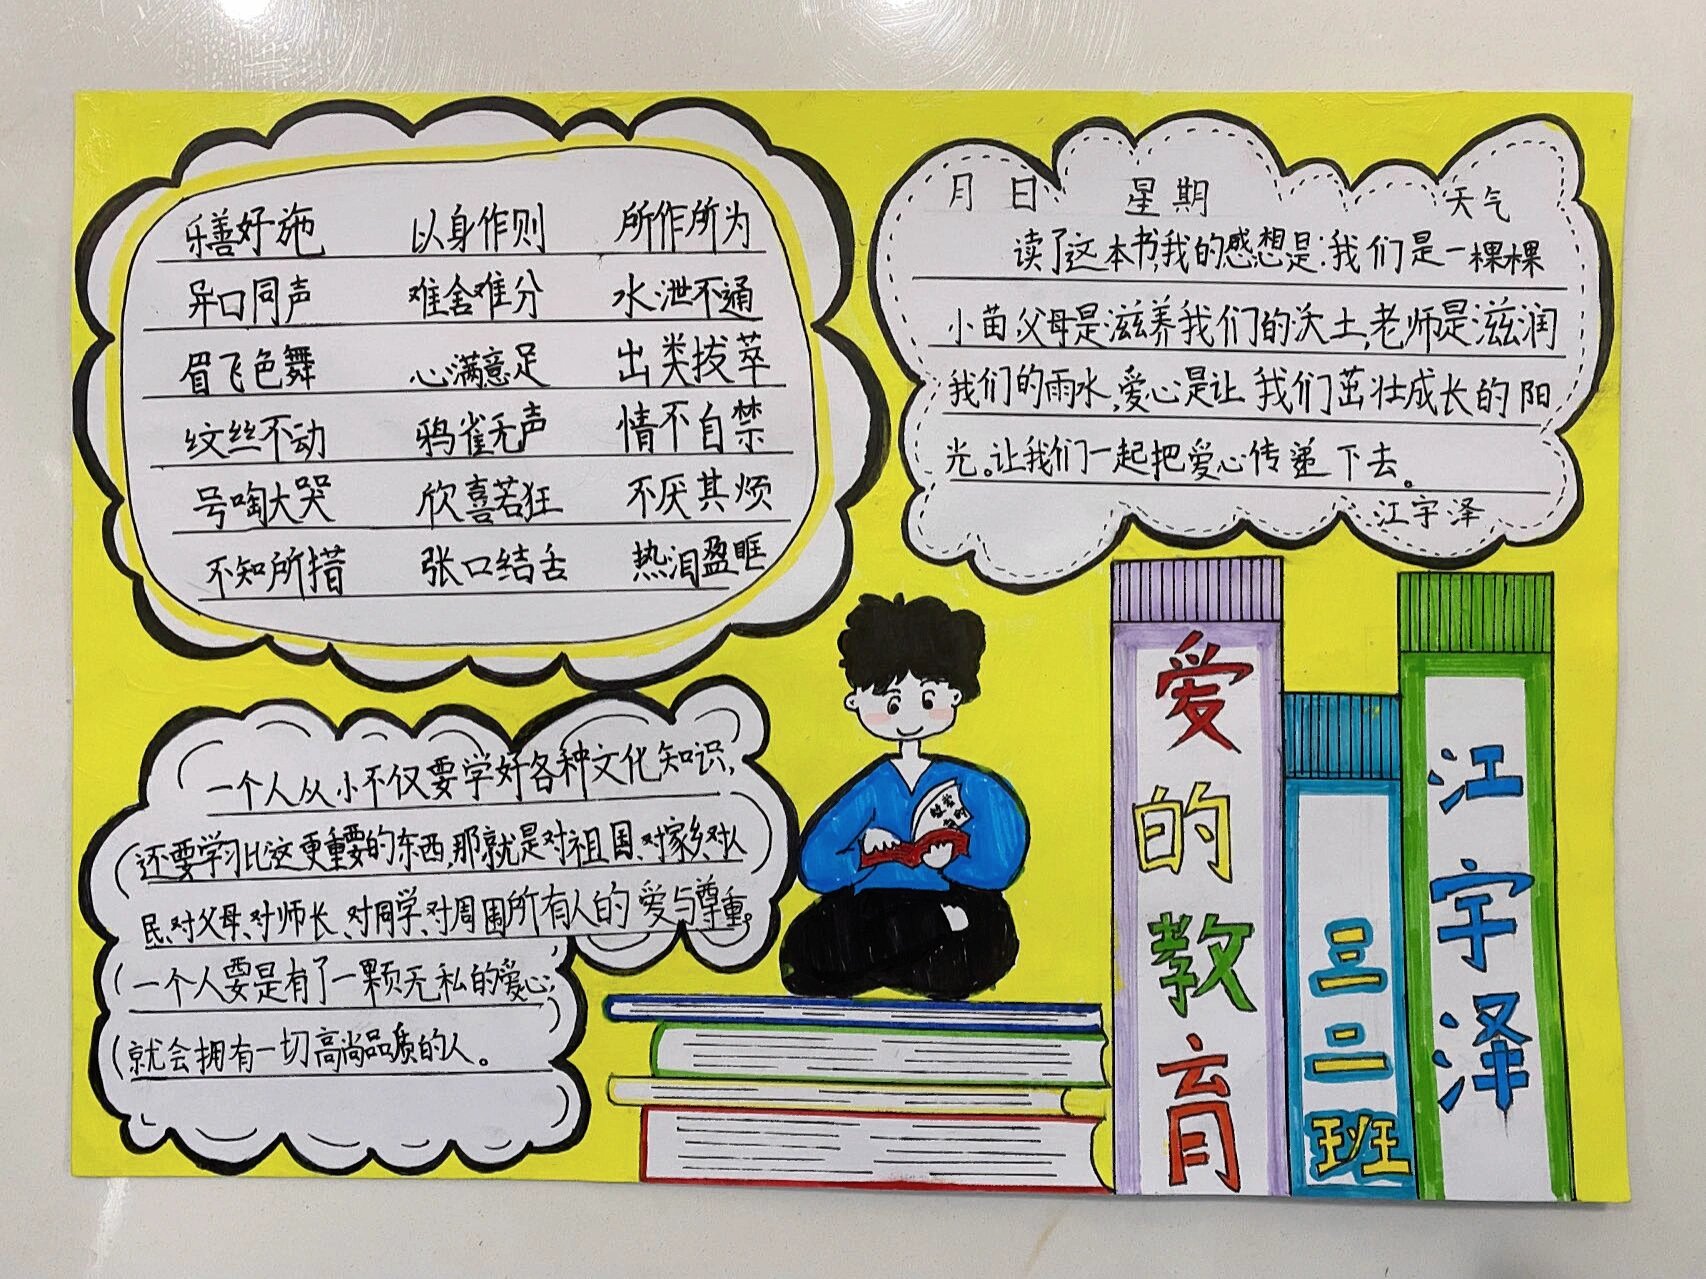 乐善好施 以身作则 所作所为
异口同声 难舍难分 水泄不通
眉飞色舞 心满意足 出类拔萃
纹丝不动 鸦雀无声 情不自禁
号啕大哭 欣喜若狂 不厌其烦
不知所措 张口结舌 热泪盈眶
月 日 星期 天气
读了这本书,我的感想是:我们是一棵棵
小苗,父母是滋养我们的沃土,老师是滋润
我们的雨水,爱心是让我们茁壮成长的阳
光。让我们一起把爱心传递下去。
江宇泽
一个人从小不仅要学好各种文化知识,
还要学习比这更重要的东西,那就是对祖国、对家乡、对人
民、对父母、对师长、对同学、对周围所有人的爱与尊重。
一个人要是有了一颗无私的爱心,
就会拥有一切高尚品质的人。
爱的教育
三二班
江宇泽